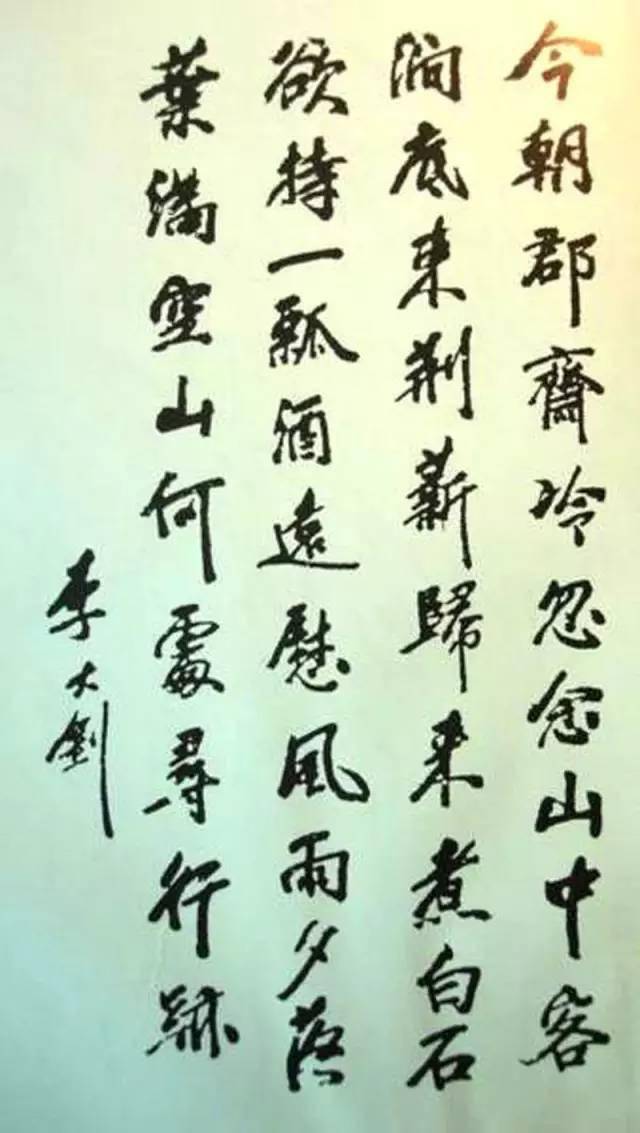 今朝郡齋冷忽念山中客
澗底束荆薪歸來煮白石
欲持一瓢酒遠慰風雨夕落
葉滿空山何處尋行跡
李大釗